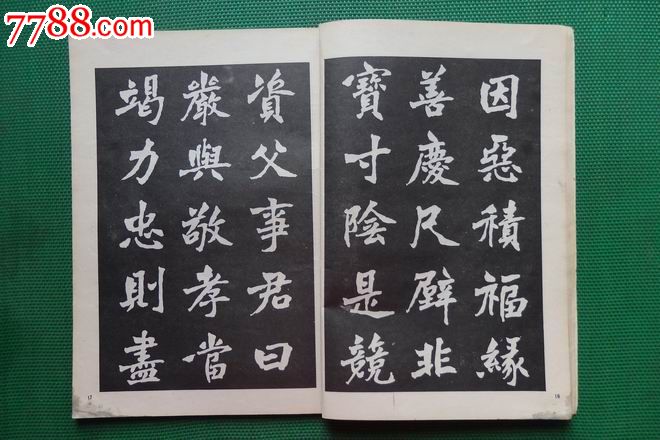 7788.com
因惡積福緣
善慶尺璧非
寶寸陰是競
16
資父事君曰
嚴與敬孝當
竭力忠則盡
17